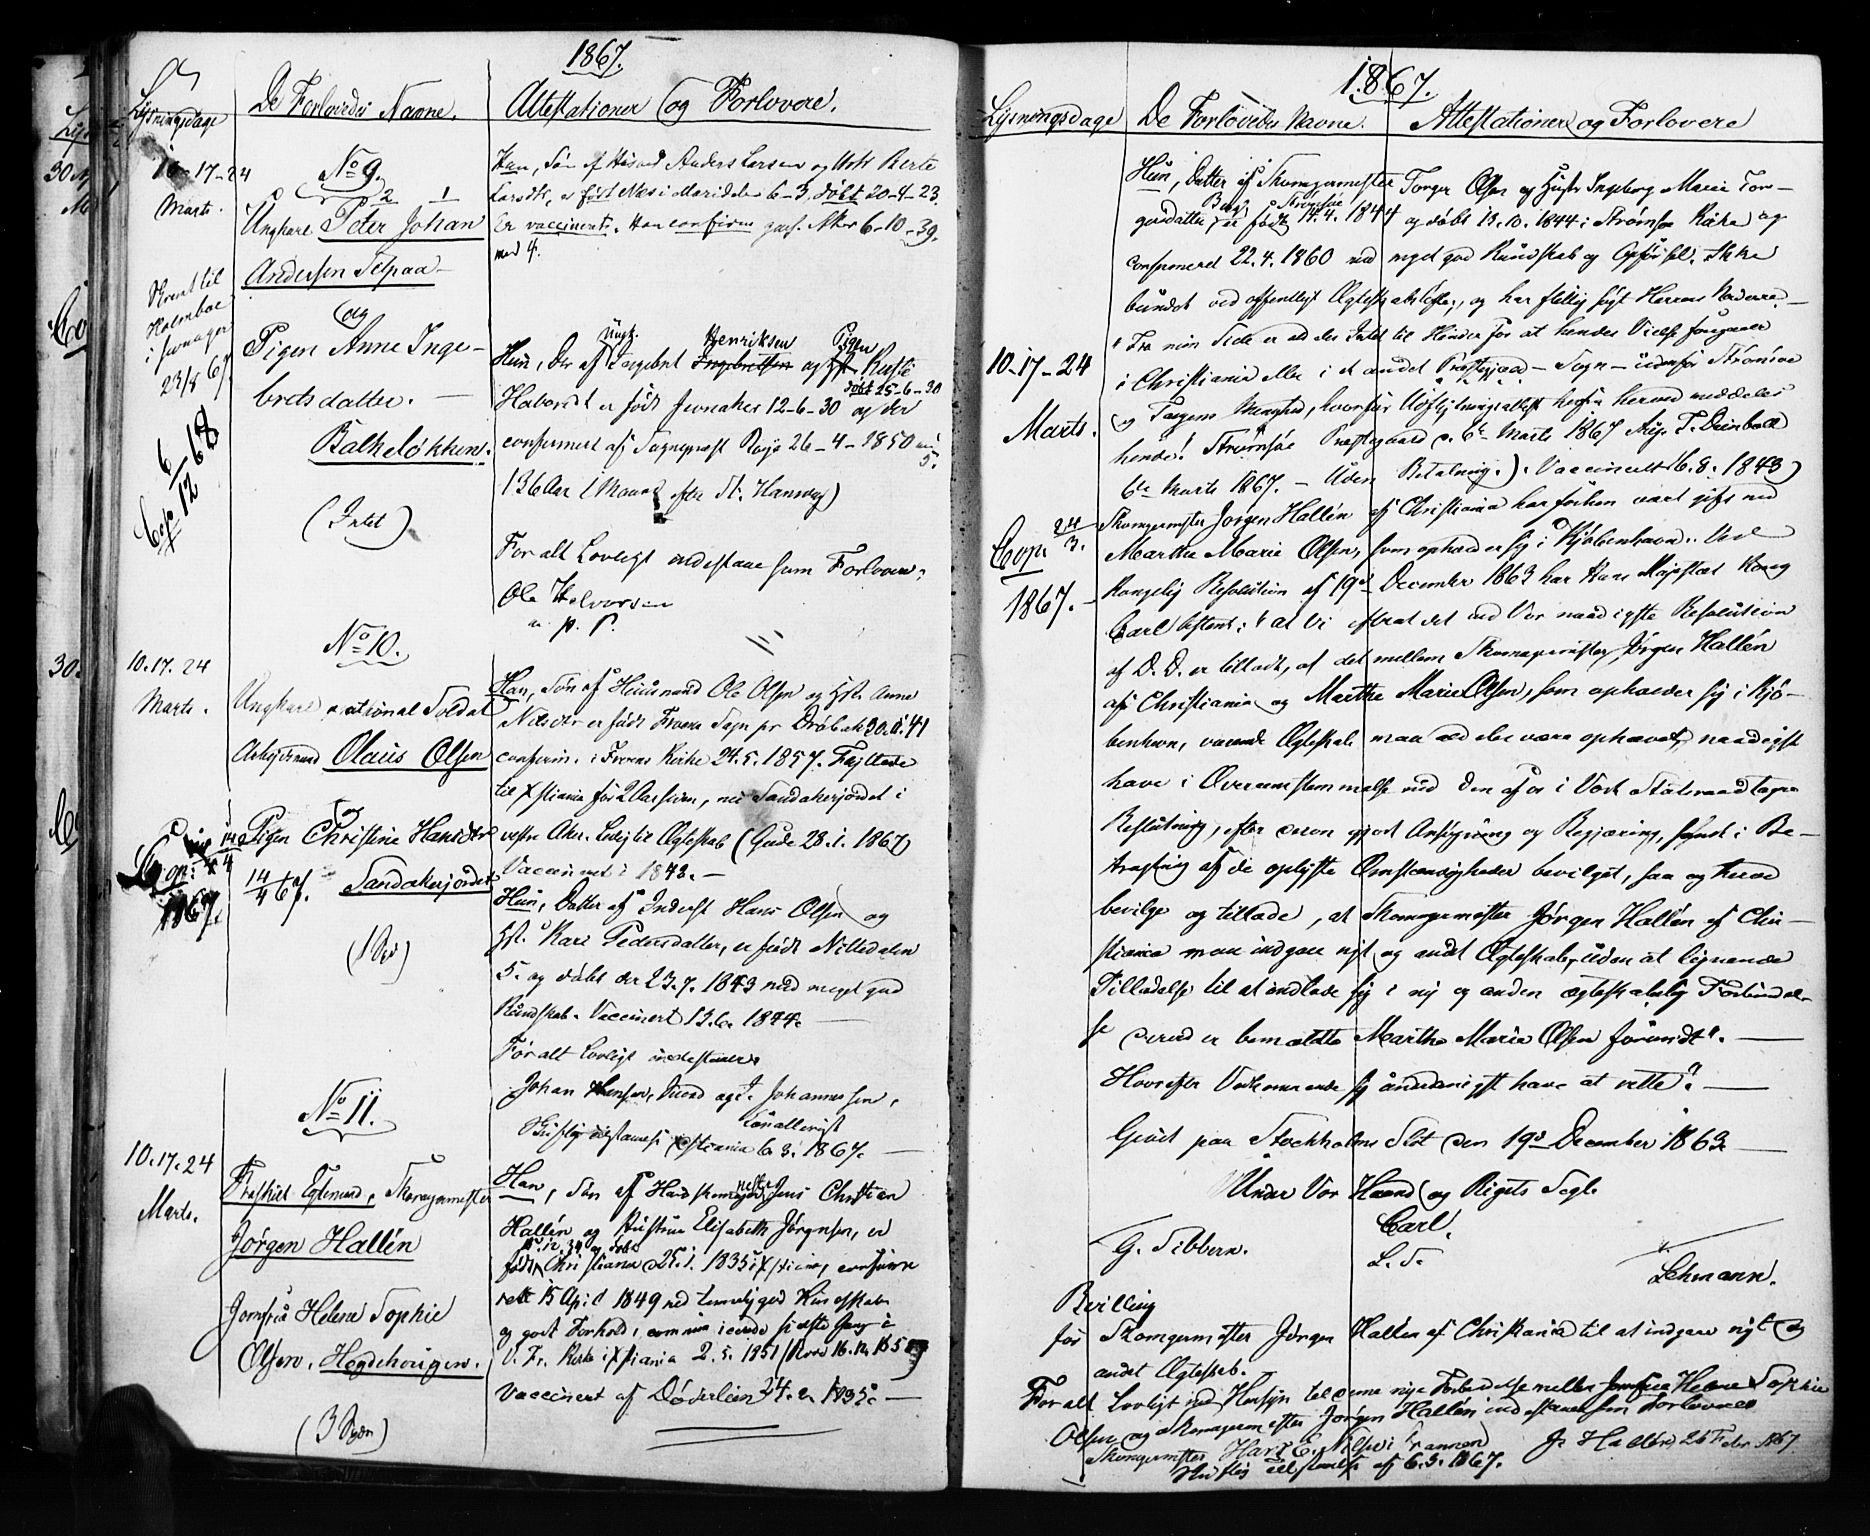 1867.
Lysningsdage
De Forlovedes Navne.
Attestationer og Forlovere.
10-17-24
Marts.
No 9.
2 1
Ungkarl Peter Johan
Andersen
og
Pigen Anne Inge-
bretsdatter.
Balkeløkken.
(Intet)
Skrevet til
Holmboe
i Jevnager
23/8 67
Cop 6/12 68
Han, Søn af Husmd Anders Larsen og Berte
Larsdtr, er født Næs i Maridalen 6-3, døbt 20-4-23.
Er vaccineret. Han confirm Aker 6-10-39.
med 4.
Hun, Dtr af Ungk. Ingebret Henriksen og Pigen
Haborsdt er født Jevnaker 12-6-30 og der døbt 25-6-30
confirmert af Sognepræst 26-4-1850
5.
(36 Aar 1 Maaned efter St. Hansdag)
For alt Lovligt indestaae som Forlovere:
Ole Halvorsen
m. p. P.
No 10.
10.17.24
Marts.
Ungkarl national Soldat
Arbejdsmand Olaus Olsen
og
Pigen Christine Hansdtr
Sandakerjordet
14/4 67.
(1 Dør)
Cop: 14/4
1867.
Han, Søn af Huusmand Ole Olsen og Hst. Anne
Nilsdtr er født Froens Sogn pr Drøbak 30. 41
confirm. i Froens Kirke 24.5.1857. Flyttede
til Xstiania for 2 Aar siden, nu Sandakerjordet i
vestre Aker. Ledig til Ægteskab (Gude 28.1.1867)
Vaccineret i 1843.-
Hun, Datter af Inderst Hans Olsen og
Hst. Kari Pedersdatter, er født Nittedalen
5. og døbt der 23.7.1843 med meget god
Kundskab. Vaccinert 13.6. 1844.
For alt Lovligt indestaaer
Johan Hansen, Johannessen,
Xstiania 6.3.1867.
No 11.
10.17.24
Marts.
Fraskilt Egtemand, Skomagermester
Jörgen Hallén
Jomfru Helene Sophie
Olsen. Hegdehougen.
(3 Døre)
Han, Søn af Handskemagermester Jens Christian
Hallén og Hustrue Elisabeth Jörgensen, er
født Christiania 25.1.1835 i Xstiania, confirme-
rett 15 April 1849 med temmelig god Kundskab
og godt Forhold, communicerede sidste Gang i
V. Fr. Kirke i Xstiania 2.5.1851
Vaccinert af Døderlein 1835.
1867.
Lysningsdage
De Forlovedes Navne.
Attestationer og Forlovere
10-17-24
Marts.
Cop. 24/3.
1867.
Hun, Datter af Skomagermester Torger Olsen og Hustr Ingeborg Marie Tor-
gersdatter, er født Bragn. Strømsøe 14.4.1844 og døbt 13.10.1844 i Strømsø Kirke og
confirmeret 22.4.1860 med meget god Kundskab og Opførsel. Ikke
bundet ved offentligt Ægteskabsløfte, og har flittig søgt Herrens Nadvere.
"Fra min Side er altsaa Intet til Hinder for at hendes Vielse foregaaer
i Christiania eller i et andet Præstegjæld - Sogn - udenfor Strømsøe
og Tangens Menighed, hvorfor Udflytningsattest herfra herved meddeles
hende! Strømsøe Præstegaard d. 6te Marts 1867 Aug. T. Deinboll
6te Marts 1867. - Uden Betaling.). Vaccineret 16.8.1843)
Skomagermester Jörgen Hallén af Christiania har forhen været gift med
Marthe Marie Olsen, som opholder sig i Kjøbenhavn. Ved
Kongelig Resolution af 19de December 1863 har Hans Majestæt Kong
Carl bestemt: "at Vi efterat det ved Vor naadigste Resolution
af D. D. er tilladt, at det mellem Skomagermester Jörgen Hallén
af Christiania og Marthe Marie Olsen, som opholder sig i Kjö-
benhavn, værende Ægteskab maa aldeles være ophævet, naadigst
have i Overensstemmelse med den af os i Vort Statsraad tagne
Beslutning, efter derom gjort Ansøgning og Begjæring, samt i Be-
tragtning af de oplyste Omstændigheder bevilget, saa og herved
bevilge og tillade, at Skomagermester Jörgen Hallén af Chri-
stiania maa indgaae nyt og andet Ægteskab, uden at lignende
Tilladelse til at indlade sig i ny og anden ægteskabelig Forbindel-
se derved er bemældte Marthe Marie Olsen forundt".
Hvorefter Vedkommende sig underdanigst have at rette."
Givet paa Stockholms Slot den 19de December 1863
Under Vor Haand og Rigets Segl.
Carl.
G. Sibbern.
L. S.
Lehmann.
Bevilling
for Skomagermester Jörgen Hallén af Christiania til at indgaae nyt og
andet Ægteskab.
For alt Lovligt med Hensyn til denne nye Forbindelse mellem Jomfrue Helene Sophie
Olsen og Skomagermester Jörgen Hallén indestaaes som Forlovere
Skomagermester Hans E. J. Hallén 26 Febr. 1867.
af 6.3.1867.